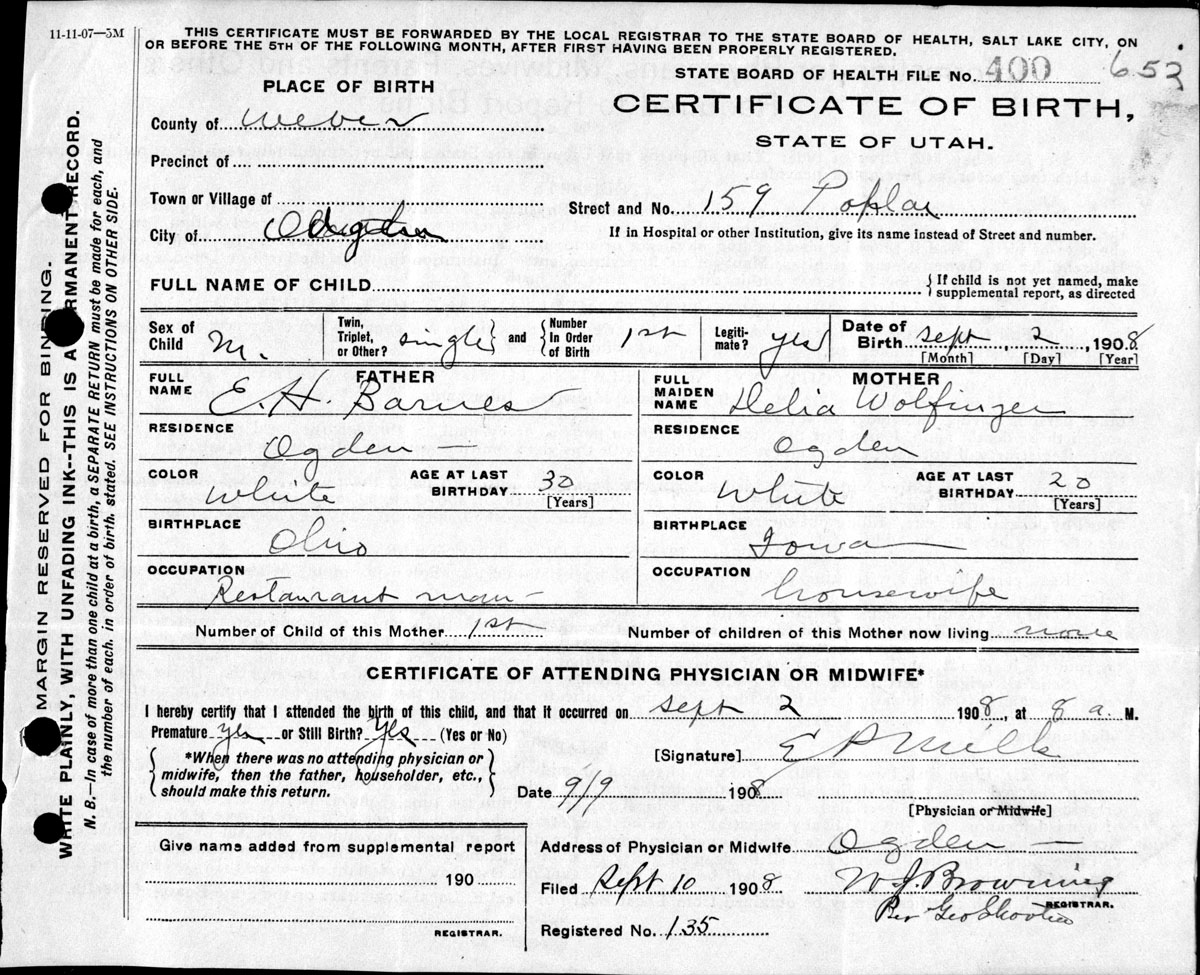 11-11-07—5M
THIS CERTIFICATE MUST BE FORWARDED BY THE LOCAL REGISTRAR TO THE STATE BOARD OF HEALTH, SALT LAKE CITY, ON
OR BEFORE THE 5TH OF THE FOLLOWING MONTH, AFTER FIRST HAVING BEEN PROPERLY REGISTERED.
STATE BOARD OF HEALTH FILE No. 400 652
PLACE OF BIRTH
CERTIFICATE OF BIRTH,
STATE OF UTAH.
County of Weber
Precinct of
Town or Village of
Street and No. 159 Poplar
City of
If in Hospital or other Institution, give its name instead of Street and number.
FULL NAME OF CHILD
{ If child is not yet named, make
supplemental report, as directed
Sex of Child M.
Twin, Triplet, or Other? single } and { Number In Order of Birth 1st
Legiti-mate? yes
Date of Birth Sept 2, 1908
[Month] [Day] [Year]
FATHER
FULL NAME E. H. Barnes
RESIDENCE Ogden —
COLOR White
AGE AT LAST BIRTHDAY 30 [Years]
BIRTHPLACE Ohio
OCCUPATION Restaurant man —
MOTHER
FULL MAIDEN NAME Delia Wolfinger
RESIDENCE Ogden
COLOR White
AGE AT LAST BIRTHDAY 20 [Years]
BIRTHPLACE Iowa
OCCUPATION housewife
Number of Child of this Mother 1st
Number of children of this Mother now living none
CERTIFICATE OF ATTENDING PHYSICIAN OR MIDWIFE*
I hereby certify that I attended the birth of this child, and that it occurred on Sept 2 1908, at 8 a. M.
Premature yes or Still Birth? Yes (Yes or No)
{ *When there was no attending physician or
midwife, then the father, householder, etc.,
should make this return. }
[Signature] E P Mills
Date 9/9 1908
[Physician or Midwife]
Address of Physician or Midwife Ogden —
Filed Sept 10 1908 W. J. Browning
REGISTRAR.
Per Geo
Registered No. 135
Give name added from supplemental report
190
REGISTRAR.
MARGIN RESERVED FOR BINDING.
WRITE PLAINLY, WITH UNFADING INK--THIS IS A PERMANENT RECORD.
N. B.—In case of more than one child at a birth, a SEPARATE RETURN must be made for each, and
the number of each, in order of birth, stated. SEE INSTRUCTIONS ON OTHER SIDE.